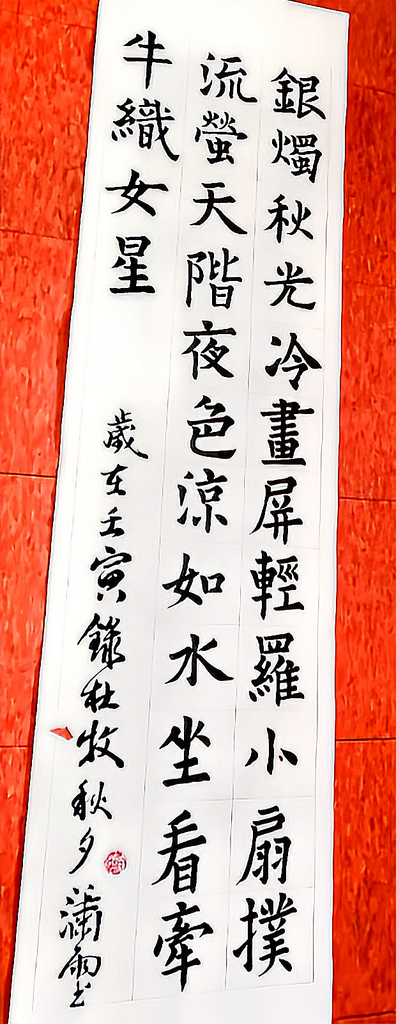 銀燭秋光冷畫屏輕羅小扇撲
流螢天階夜色涼如水坐看牽
牛織女星
歲在壬寅錄杜牧秋夕瀟雨書